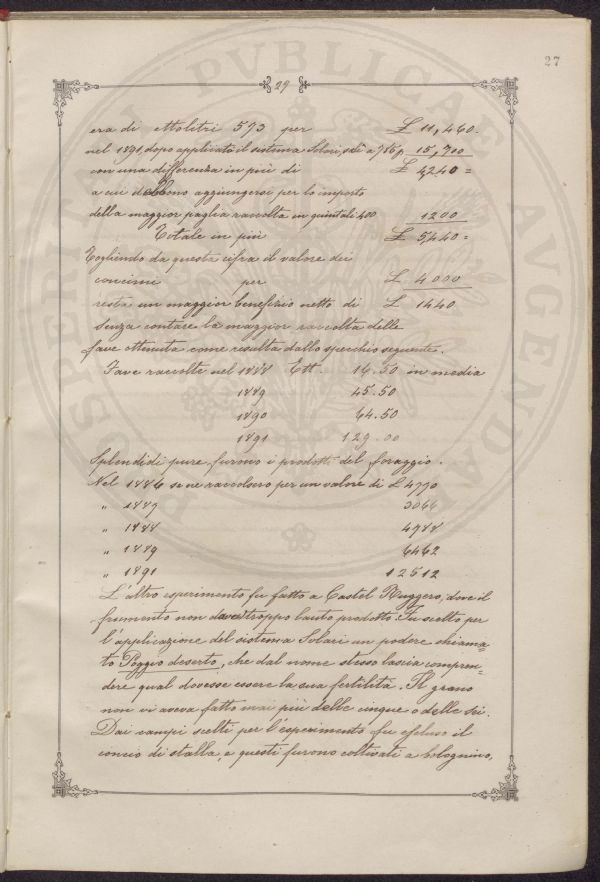 27
29
era di ettolitri 573 per £ 11,460.
nel 1891, dopo applicato il sistema Solari, salì a 785 p. 15,700
con una differenza in più di £ 4,240=
a cui debbono aggiungersi per lo importo
della maggior paglia raccolta in quintali 400 1200
Totale in più £ 5,440=
Togliendo da questa cifra il valore dei
concimi per £ 4000
resta un maggior beneficio netto di £ 1440
senza contare la maggior raccolta delle
fave ottenuta come resulta dallo specchio seguente.
Fave raccolte nel 1888 Ett. 16.50 in media
1889 45.50
1890 64.50
1891 129.00
Splendidi pure furono i prodotti del foraggio.
Nel 1886 se ne raccolsero per un valore di £ 4770
" 1887 3066
" 1888 4788
" 1889 6462
" 1891 12512
L'altro esperimento fu fatto a Castel Ruggero, dove il
frumento non dava troppo lauto prodotto. Fu scelto per
l'applicazione del sistema Solari un podere chiama=
to Poggio deserto, che dal nome stesso lascia compren=
dere qual dovesse essere la sua fertilità. Il grano
non vi aveva fatto mai più delle cinque o delle sei.
Dai campi scelti per l'esperimento fu escluso il
concio di stalla, e questi furono coltivati a bolognino,
PROSPERITATI PVBLICAE AVGENDAE